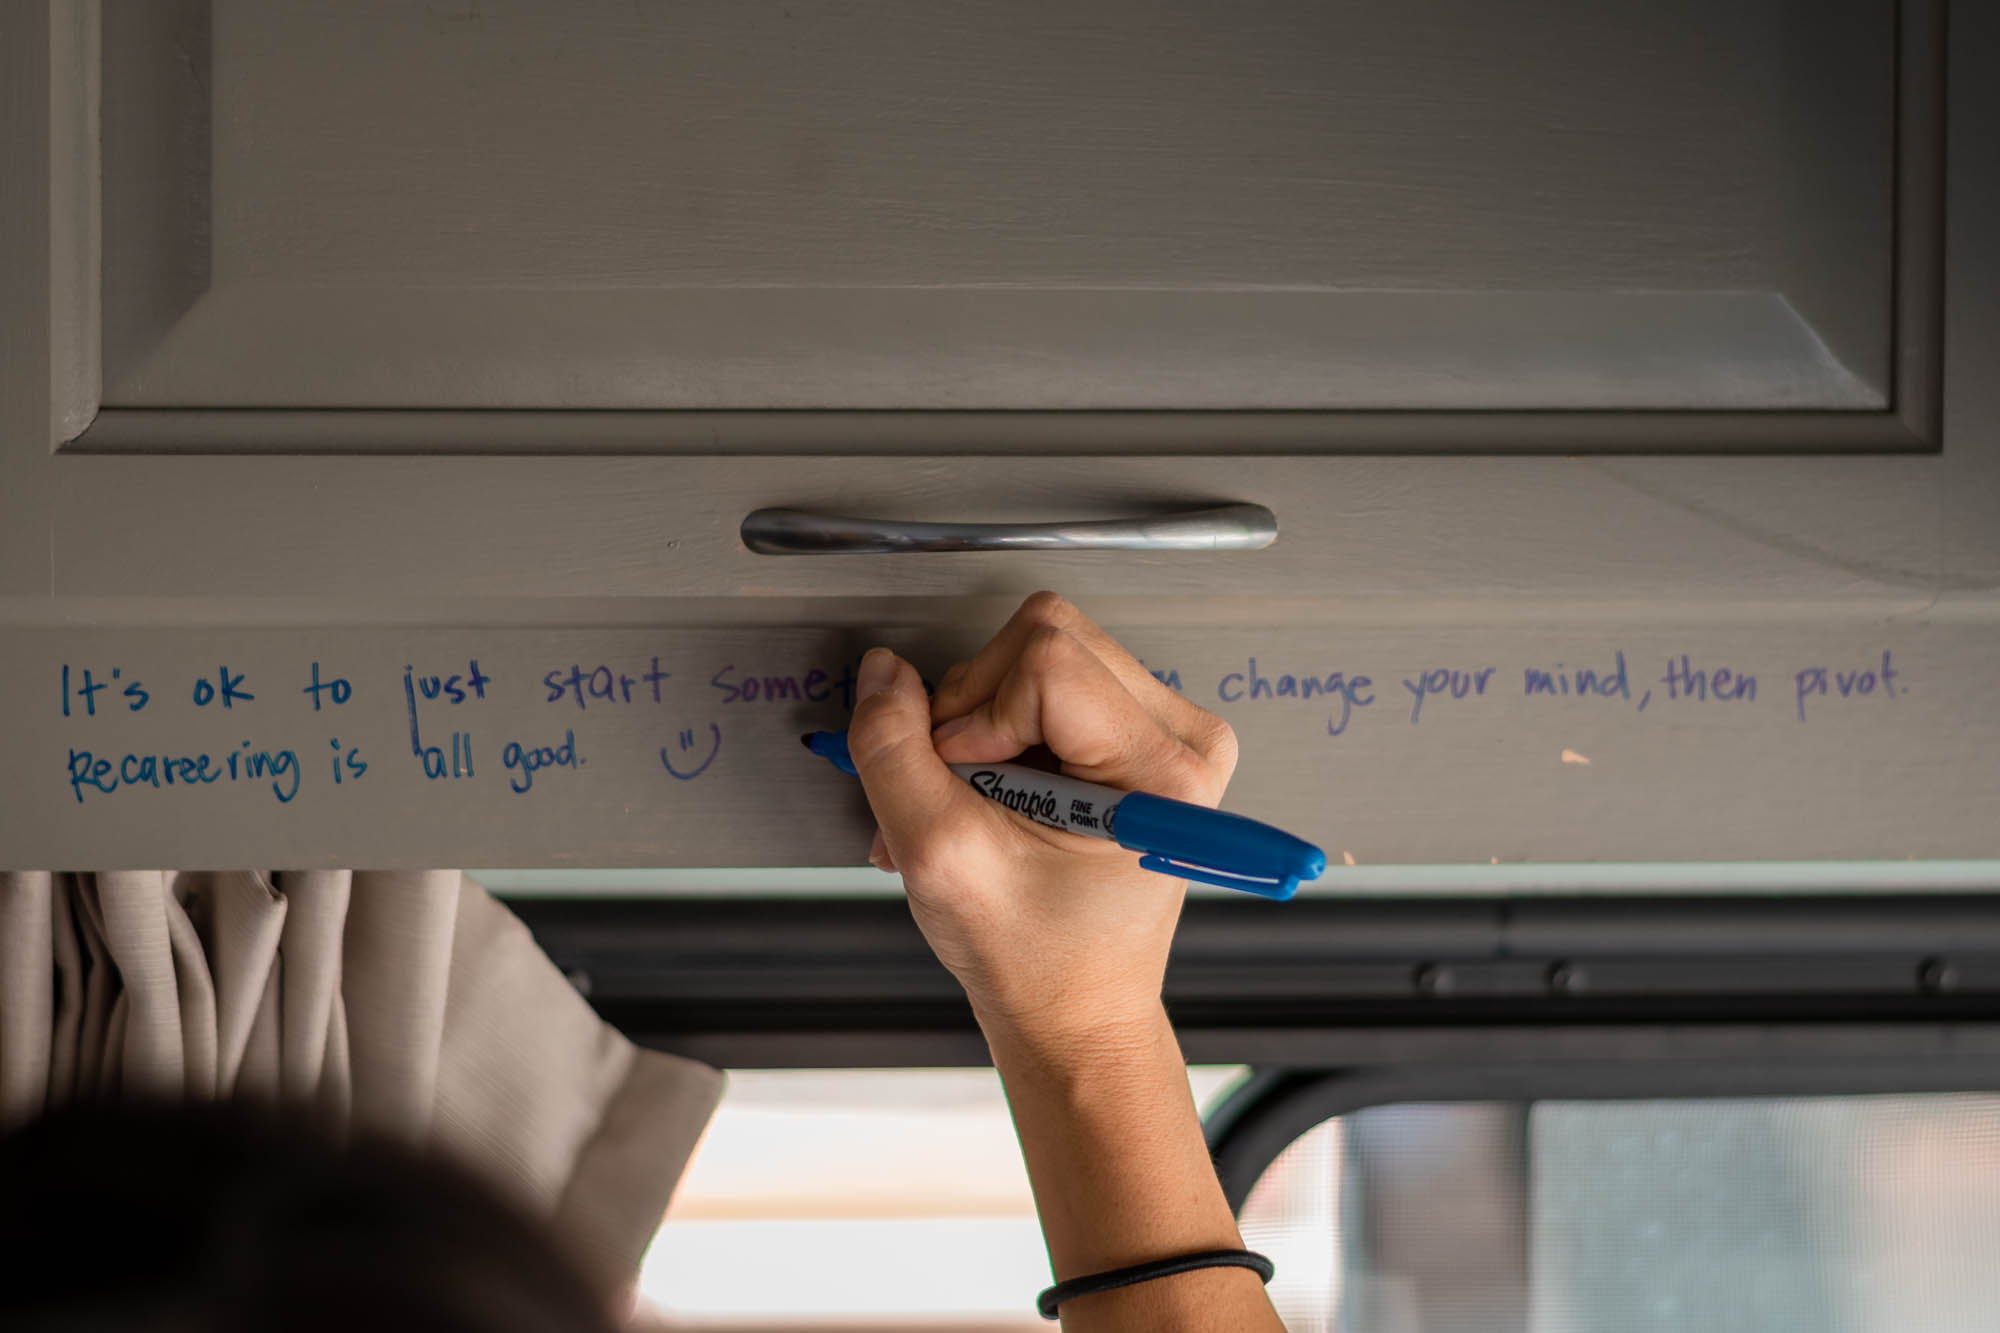 It's ok to just start somet change your mind, then pivot.
Recareering is all good.
Sharpie
FINE
POINT